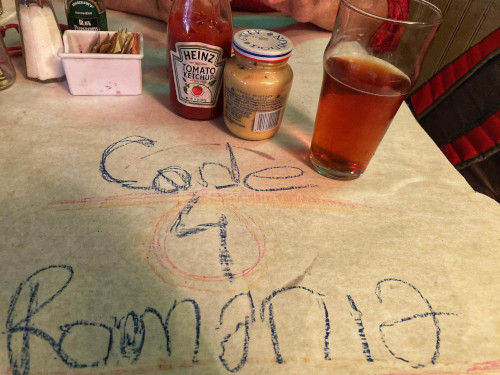 HEINZ
TOMATO
KETCHUP
Code
4
Romania